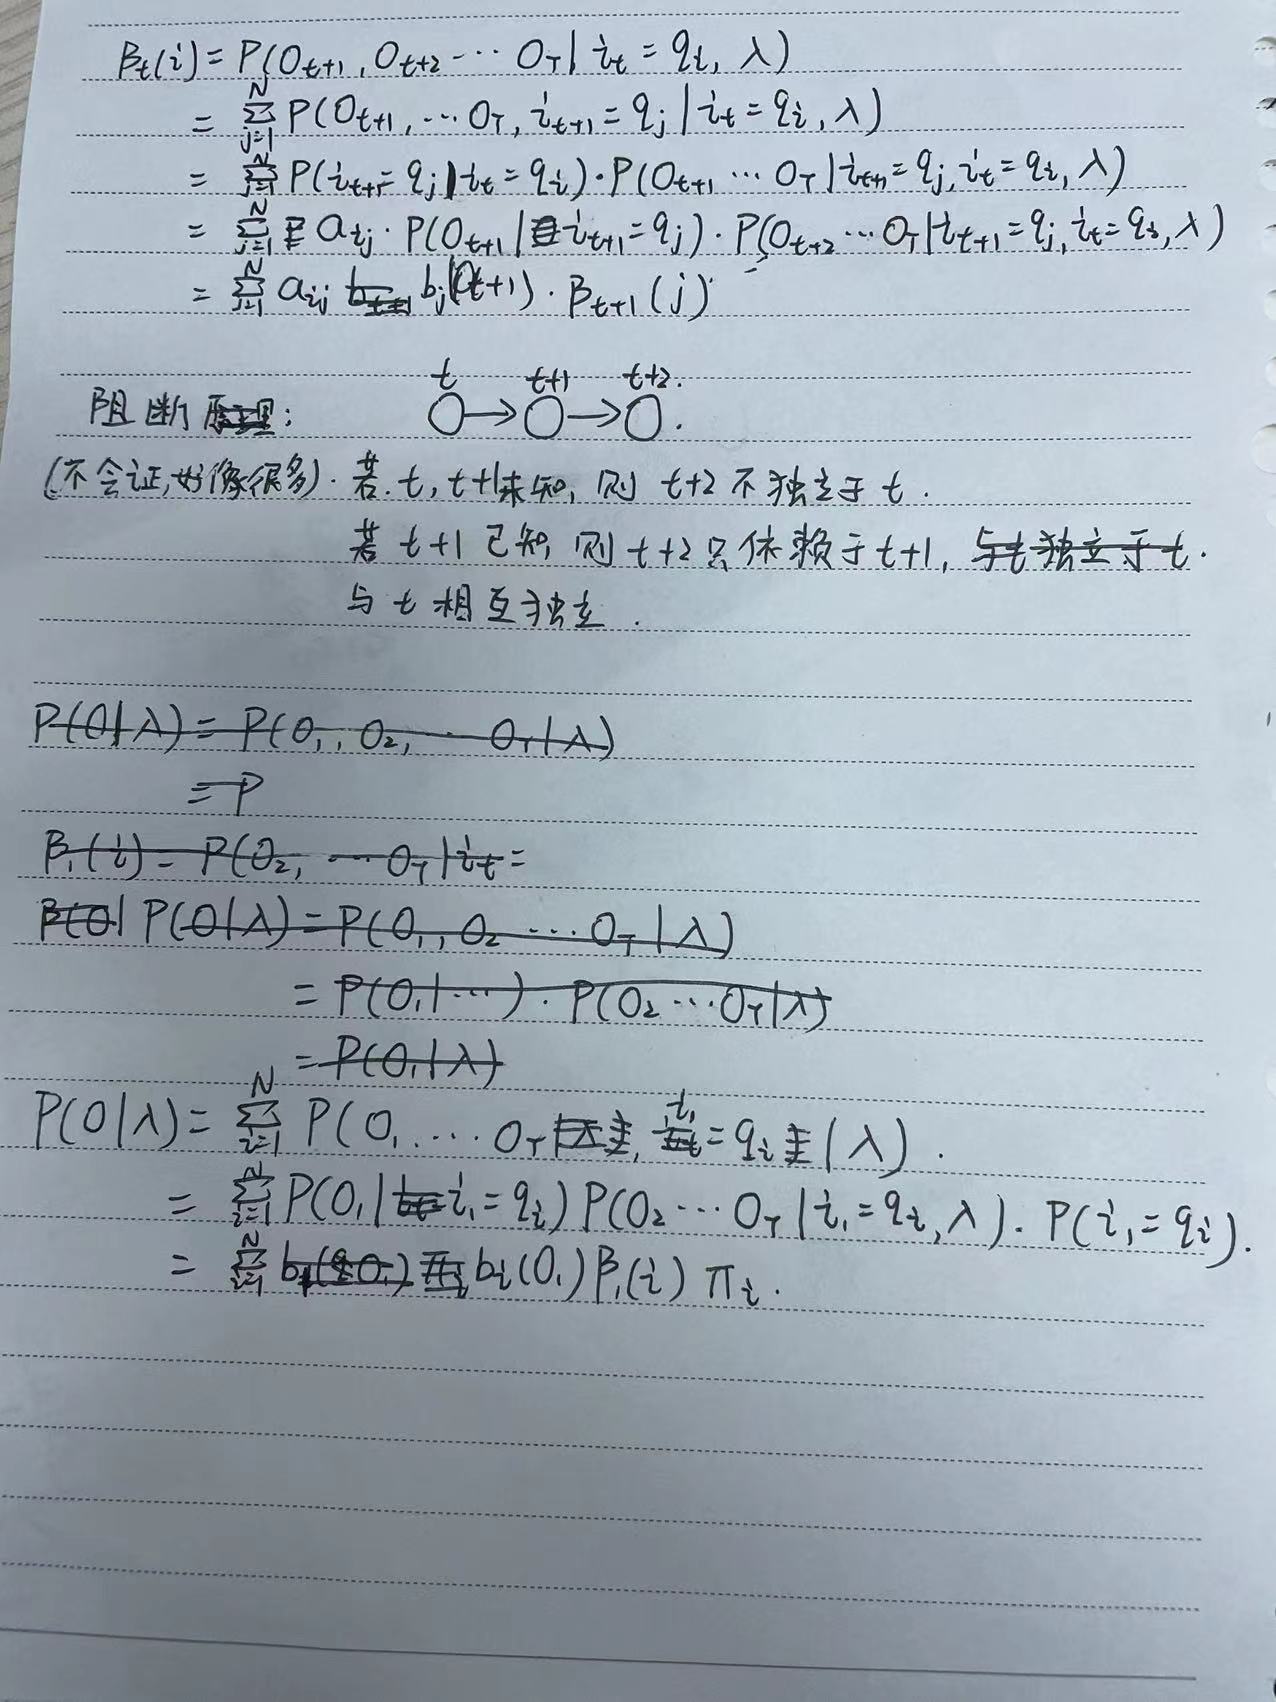 β_t(i) = P(O_{t+1}, O_{t+2} ··· O_T | i_t = q_i, λ)
= Σ_{j=1}^{N} P(O_{t+1}, ··· O_T, i_{t+1} = q_j | i_t = q_i, λ)
= Σ_{j=1}^{N} P(i_{t+1} = q_j | i_t = q_i) · P(O_{t+1} ··· O_T | i_{t+1} = q_j, i_t = q_i, λ)
= Σ_{j=1}^{N} a_{ij} · P(O_{t+1} | i_{t+1} = q_j) · P(O_{t+2} ··· O_T | i_{t+1} = q_j, i_t = q_i, λ)
= Σ_{j=1}^{N} a_{ij} b_j(O_{t+1}) · β_{t+1}(j)
t t+1 t+2.
阻断原理: ○→○→○.
(不会证,好像很多). 若 t, t+1未知, 则 t+2 不独立于 t.
若 t+1 已知, 则 t+2 只依赖于 t+1, 与t独立于 t.
与 t 相互独立.
P(O|λ) = P(O_1, O_2, ··· O_T | λ)
= P
β_1(i) = P(O_2, ··· O_T | i_t =
P(O| P(O|λ) = P(O_1, O_2 ··· O_T | λ)
= P(O_1 | ···) · P(O_2 ··· O_T | λ)
= P(O_1 | λ)
P(O|λ) = Σ_{i=1}^{N} P(O_1 ···· O_T, i_1 = q_i | λ).
= Σ_{i=1}^{N} P(O_1 | i_1 = q_i) P(O_2 ··· O_T | i_1 = q_i, λ) · P(i_1 = q_i).
= Σ_{i=1}^{N} b_i(O_1) β_1(i) π_i.